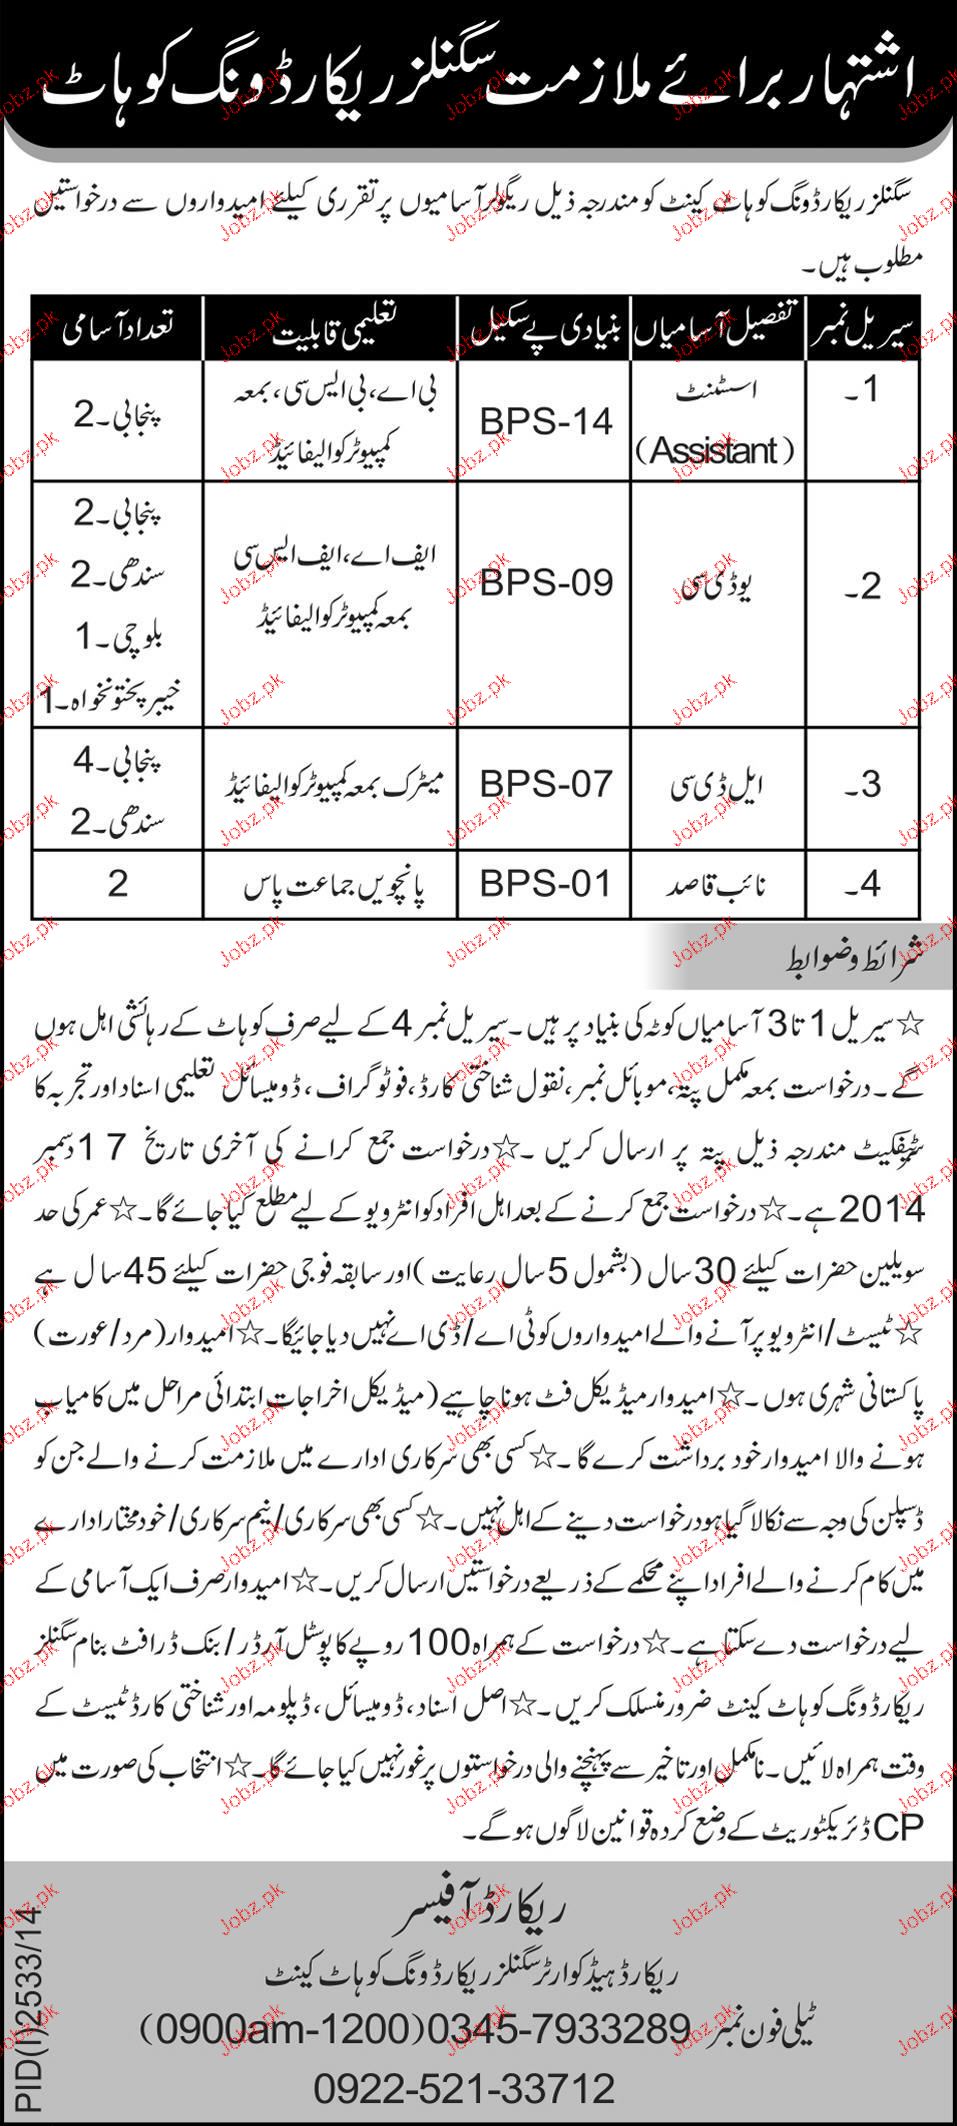 اشتہار برائے ملازمت سگنلز ریکارڈ ونگ کوہاٹ
سگنلز ریکارڈ ونگ کوہاٹ کینٹ کو مندرجہ ذیل ریگولر آسامیوں پر تقرری کیلئے امیدواروں سے درخواستیں
مطلوب ہیں۔
سیریل نمبر | تفصیل آسامیاں | بنیادی پے سکیل | تعلیمی قابلیت | تعداد آسامی
1۔ | اسسٹنٹ (Assistant) | BPS-14 | بی اے، بی ایس سی، بمعہ کمپیوٹر کوالیفائیڈ | پنجابی۔2
2۔ | یو ڈی سی | BPS-09 | ایف اے، ایف ایس سی بمعہ کمپیوٹر کوالیفائیڈ | پنجابی۔2 سندھی۔2 بلوچی۔1 خیبر پختونخواہ۔1
3۔ | ایل ڈی سی | BPS-07 | میٹرک بمعہ کمپیوٹر کوالیفائیڈ | پنجابی۔4 سندھی۔2
4۔ | نائب قاصد | BPS-01 | پانچویں جماعت پاس | 2
شرائط و ضوابط
☆ سیریل 1 تا 3 آسامیاں کوٹہ کی بنیاد پر ہیں۔ سیریل نمبر 4 کے لیے صرف کوہاٹ کے رہائشی اہل ہوں
گے۔ درخواست بمعہ مکمل پتہ، موبائل نمبر، نقول شناختی کارڈ، فوٹو گراف، ڈومیسائل تعلیمی اسناد اور تجربہ کا
سرٹیفکیٹ مندرجہ ذیل پتہ پر ارسال کریں۔ ☆ درخواست جمع کرانے کی آخری تاریخ 17 دسمبر
2014 ہے۔ ☆ درخواست جمع کرنے کے بعد اہل افراد کو انٹرویو کے لیے مطلع کیا جائے گا۔ ☆ عمر کی حد
سویلین حضرات کیلئے 30 سال (بشمول 5 سال رعایت) اور سابقہ فوجی حضرات کیلئے 45 سال ہے
☆ ٹیسٹ/انٹرویو پر آنے والے امیدواروں کو ٹی اے/ڈی اے نہیں دیا جائیگا۔ ☆ امیدوار (مرد/عورت)
پاکستانی شہری ہوں۔ ☆ امیدوار میڈیکل فٹ ہونا چاہیے (میڈیکل اخراجات ابتدائی مراحل میں کامیاب
ہونے والا امیدوار خود برداشت کرے گا۔ ☆ کسی بھی سرکاری ادارے میں ملازمت کرنے والے جن کو
ڈسپلن کی وجہ سے نکالا گیا ہو درخواست دینے کے اہل نہیں۔ ☆ کسی بھی سرکاری/نیم سرکاری/خود مختار ادارے
میں کام کرنے والے افراد اپنے محکمے کے ذریعے درخواستیں ارسال کریں۔ ☆ امیدوار صرف ایک آسامی کے
لیے درخواست دے سکتا ہے۔ ☆ درخواست کے ہمراہ 100 روپے کا پوسٹل آرڈر/بنک ڈرافٹ بنام سگنلز
ریکارڈ ونگ کوہاٹ کینٹ ضرور منسلک کریں۔ ☆ اصل اسناد، ڈومیسائل، ڈپلومہ اور شناختی کارڈ ٹیسٹ کے
وقت ہمراہ لائیں۔ نامکمل اور تاخیر سے پہنچنے والی درخواستوں پر غور نہیں کیا جائے گا۔ ☆ انتخاب کی صورت میں
CP ڈائریکٹوریٹ کے وضع کردہ قوانین لاگوں ہو گے۔
ریکارڈ آفیسر
ریکارڈ ہیڈ کوارٹر سگنلز ریکارڈ ونگ کوہاٹ کینٹ
ٹیلی فون نمبر 0345-7933289 (0900am-1200)
0922-521-33712
PID(I)2533/14
Jobz.pk